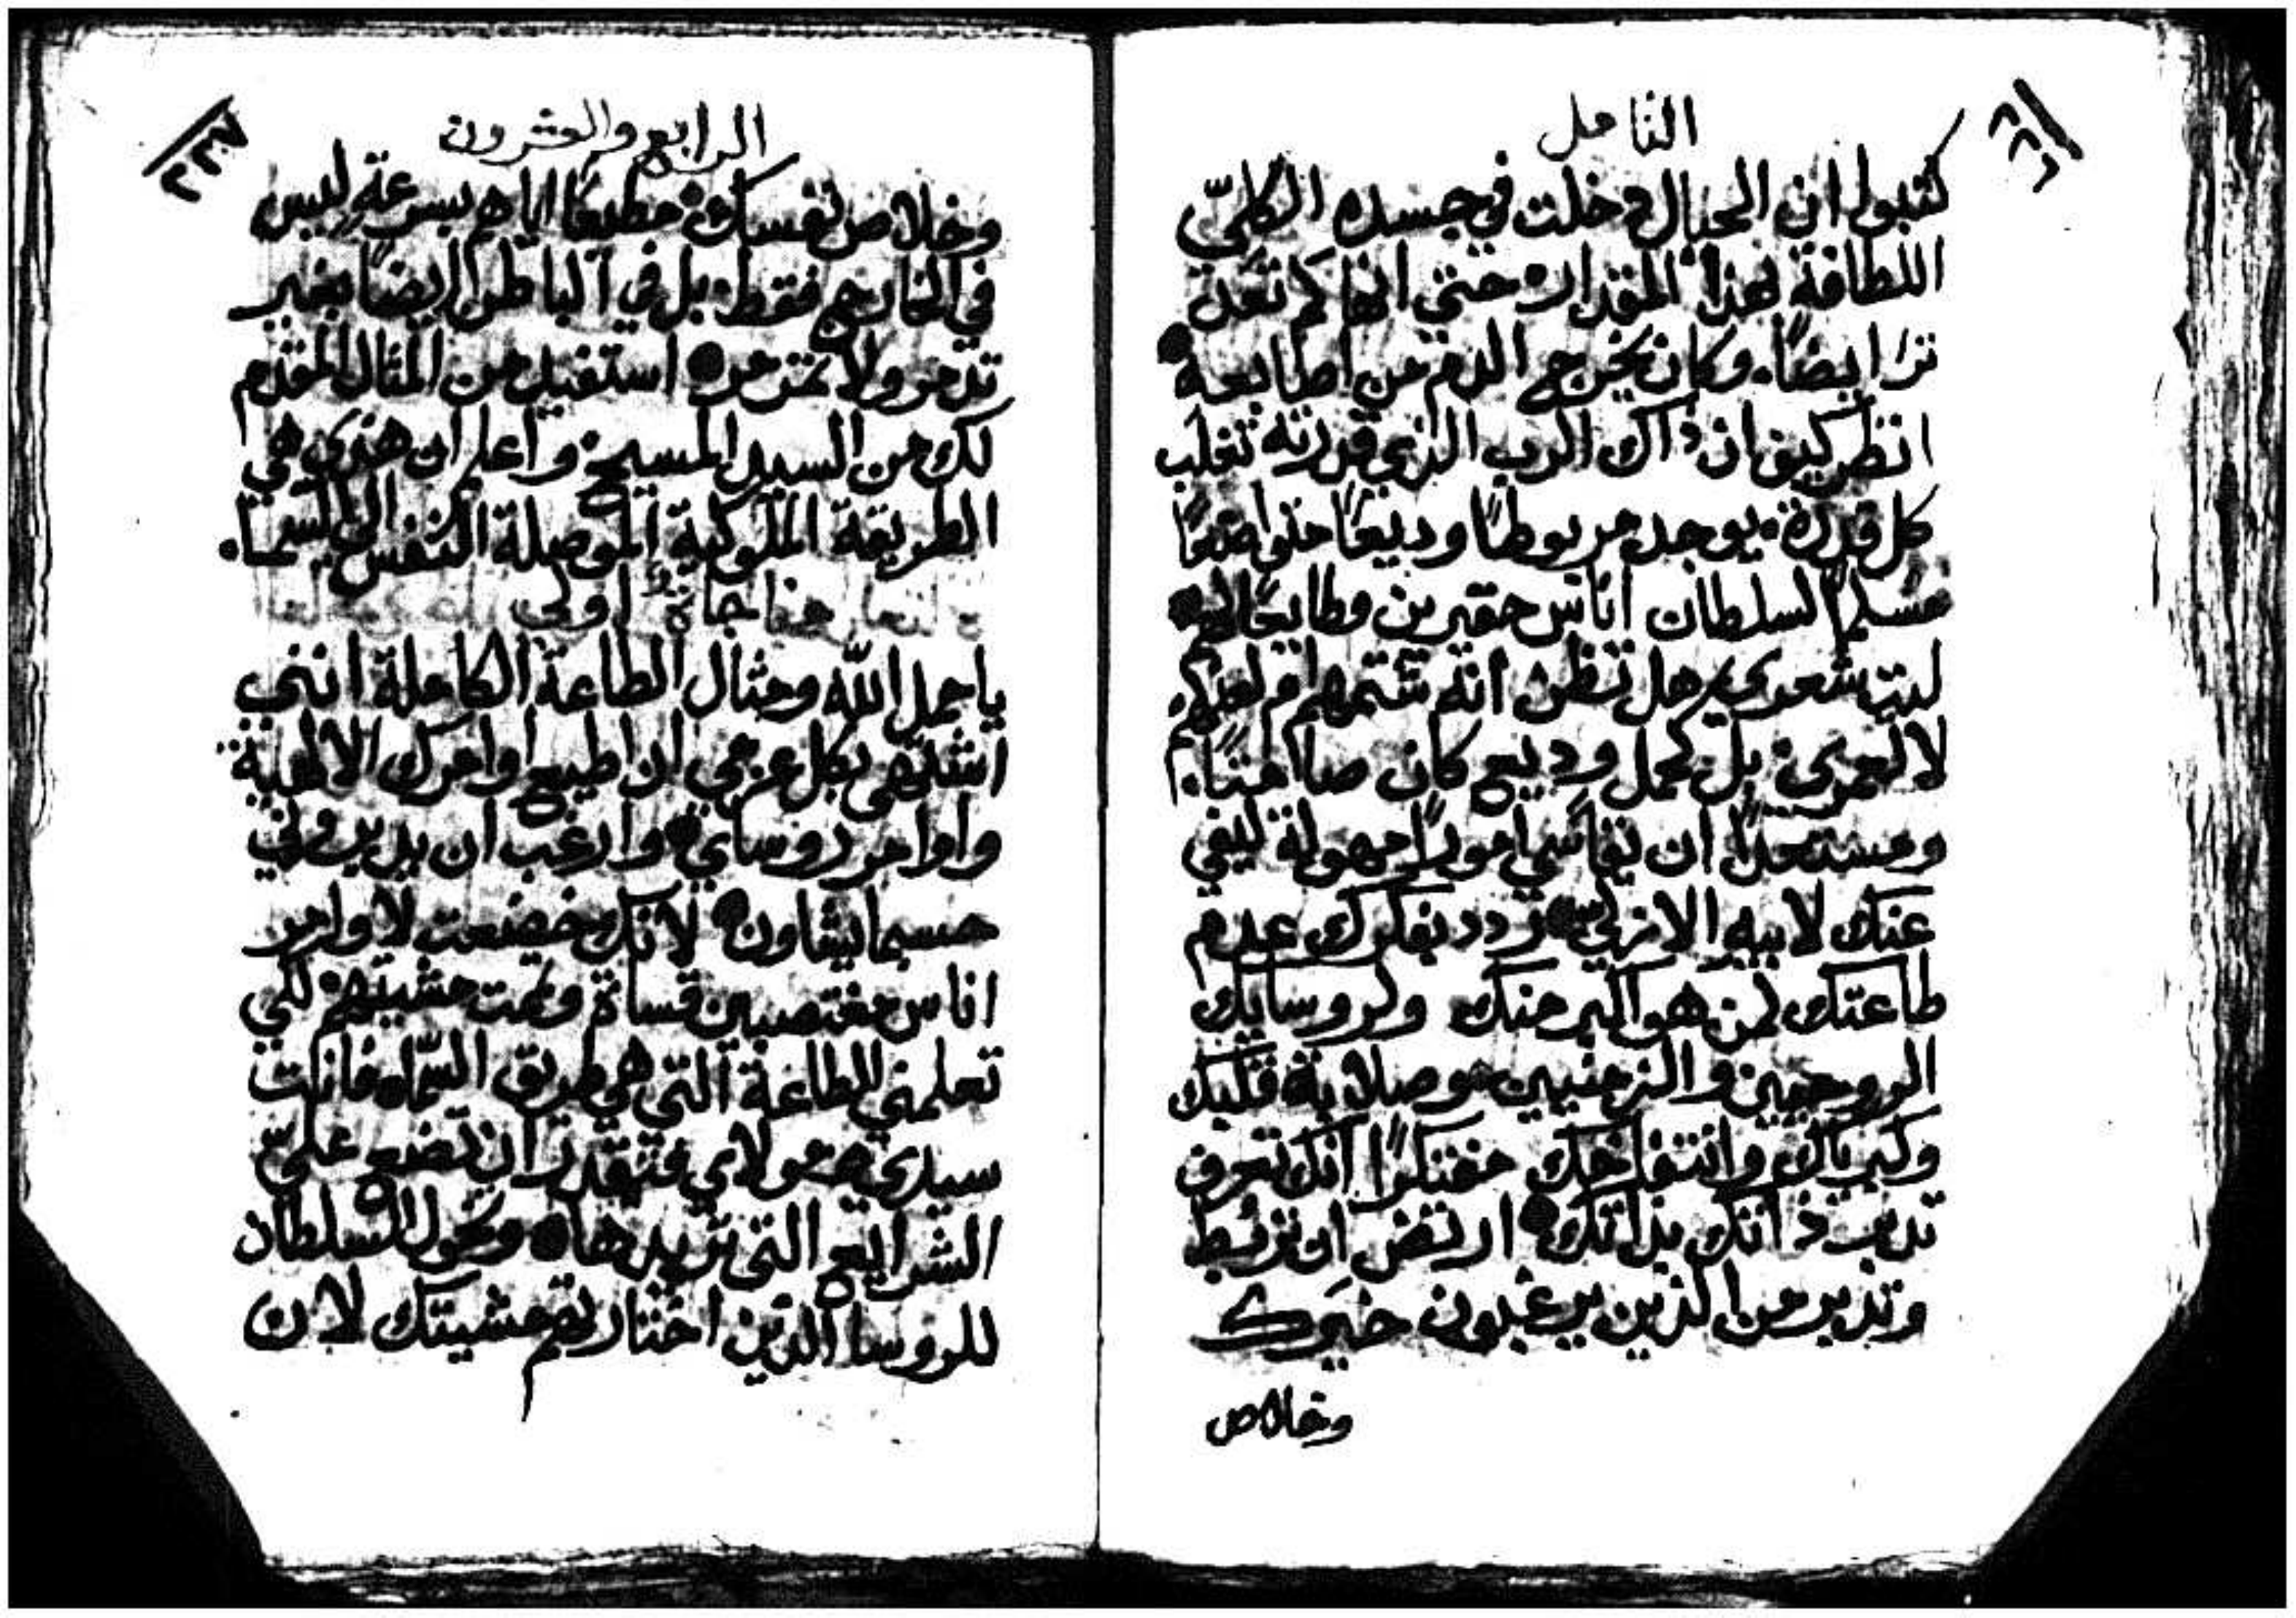 التامل
كتبوا ان الحبال دخلت في جسده الكليّ
اللطافة بهذا المقدار حتي انها لم تعد
ترا ايضًا. وكان يخرج الدم من اصابعه
انظر كيف ان ذاك الرب الذي قدرته تغلب
كل قدرة. يوجد مربوطًا وديعًا متواضعًا
مسلمًا لسلطان اناس حقيرين وطايعًا لهم
ليت شعوري هل تظن انه شتمهم او لعنهم
لا لعمري. بل كحمل وديع كان صامتًا.
ومستعدًا ان يقاسي امورًا مهولة ليفي
عنك لابيه الازلي ردد بفكرك عدم
طاعتك لمن هو اكبر منك ولروسايك
الروحيين والزمنيين وصلابة قلبك
وكبرياك وانتفاخك مفتكرًا انك تعرف
تدبر ذاتك بذاتك ارتض ان ترتبط
وتدبر من الذين يرغبون خيرك
وخلاص
الرابع والعشرون
وخلاص نفسك مطيعًا اياهم بسرعة ليس
في الخارج فقط بل في الباطن ايضًا بغير
تذمر ولا تمرمر استفيد من المثال المقدم
لك من السيد المسيح واعلم ان هذه هي
الطريقة الملوكية الموصلة النفس الي السما.
مناجاة اولي
يا حمل الله ومثال الطاعة الكاملة انني
اشتهي بكل عزمي ان اطيع اوامرك الالهية
واوامر روساي وارغب ان يدبروني
حسبما يشاون لانك خضعت لاوامر
اناس مغتصبين قساة وتممت مشيتهم لكي
تعلمني الطاعة التي هي طريق السّما فانكت
سيدي ومولاي فتقدر ان تضع عليّ
الشرايع التي تريدها وتخول السلطان
للروسا الذين اختارتهم مشيتك لان